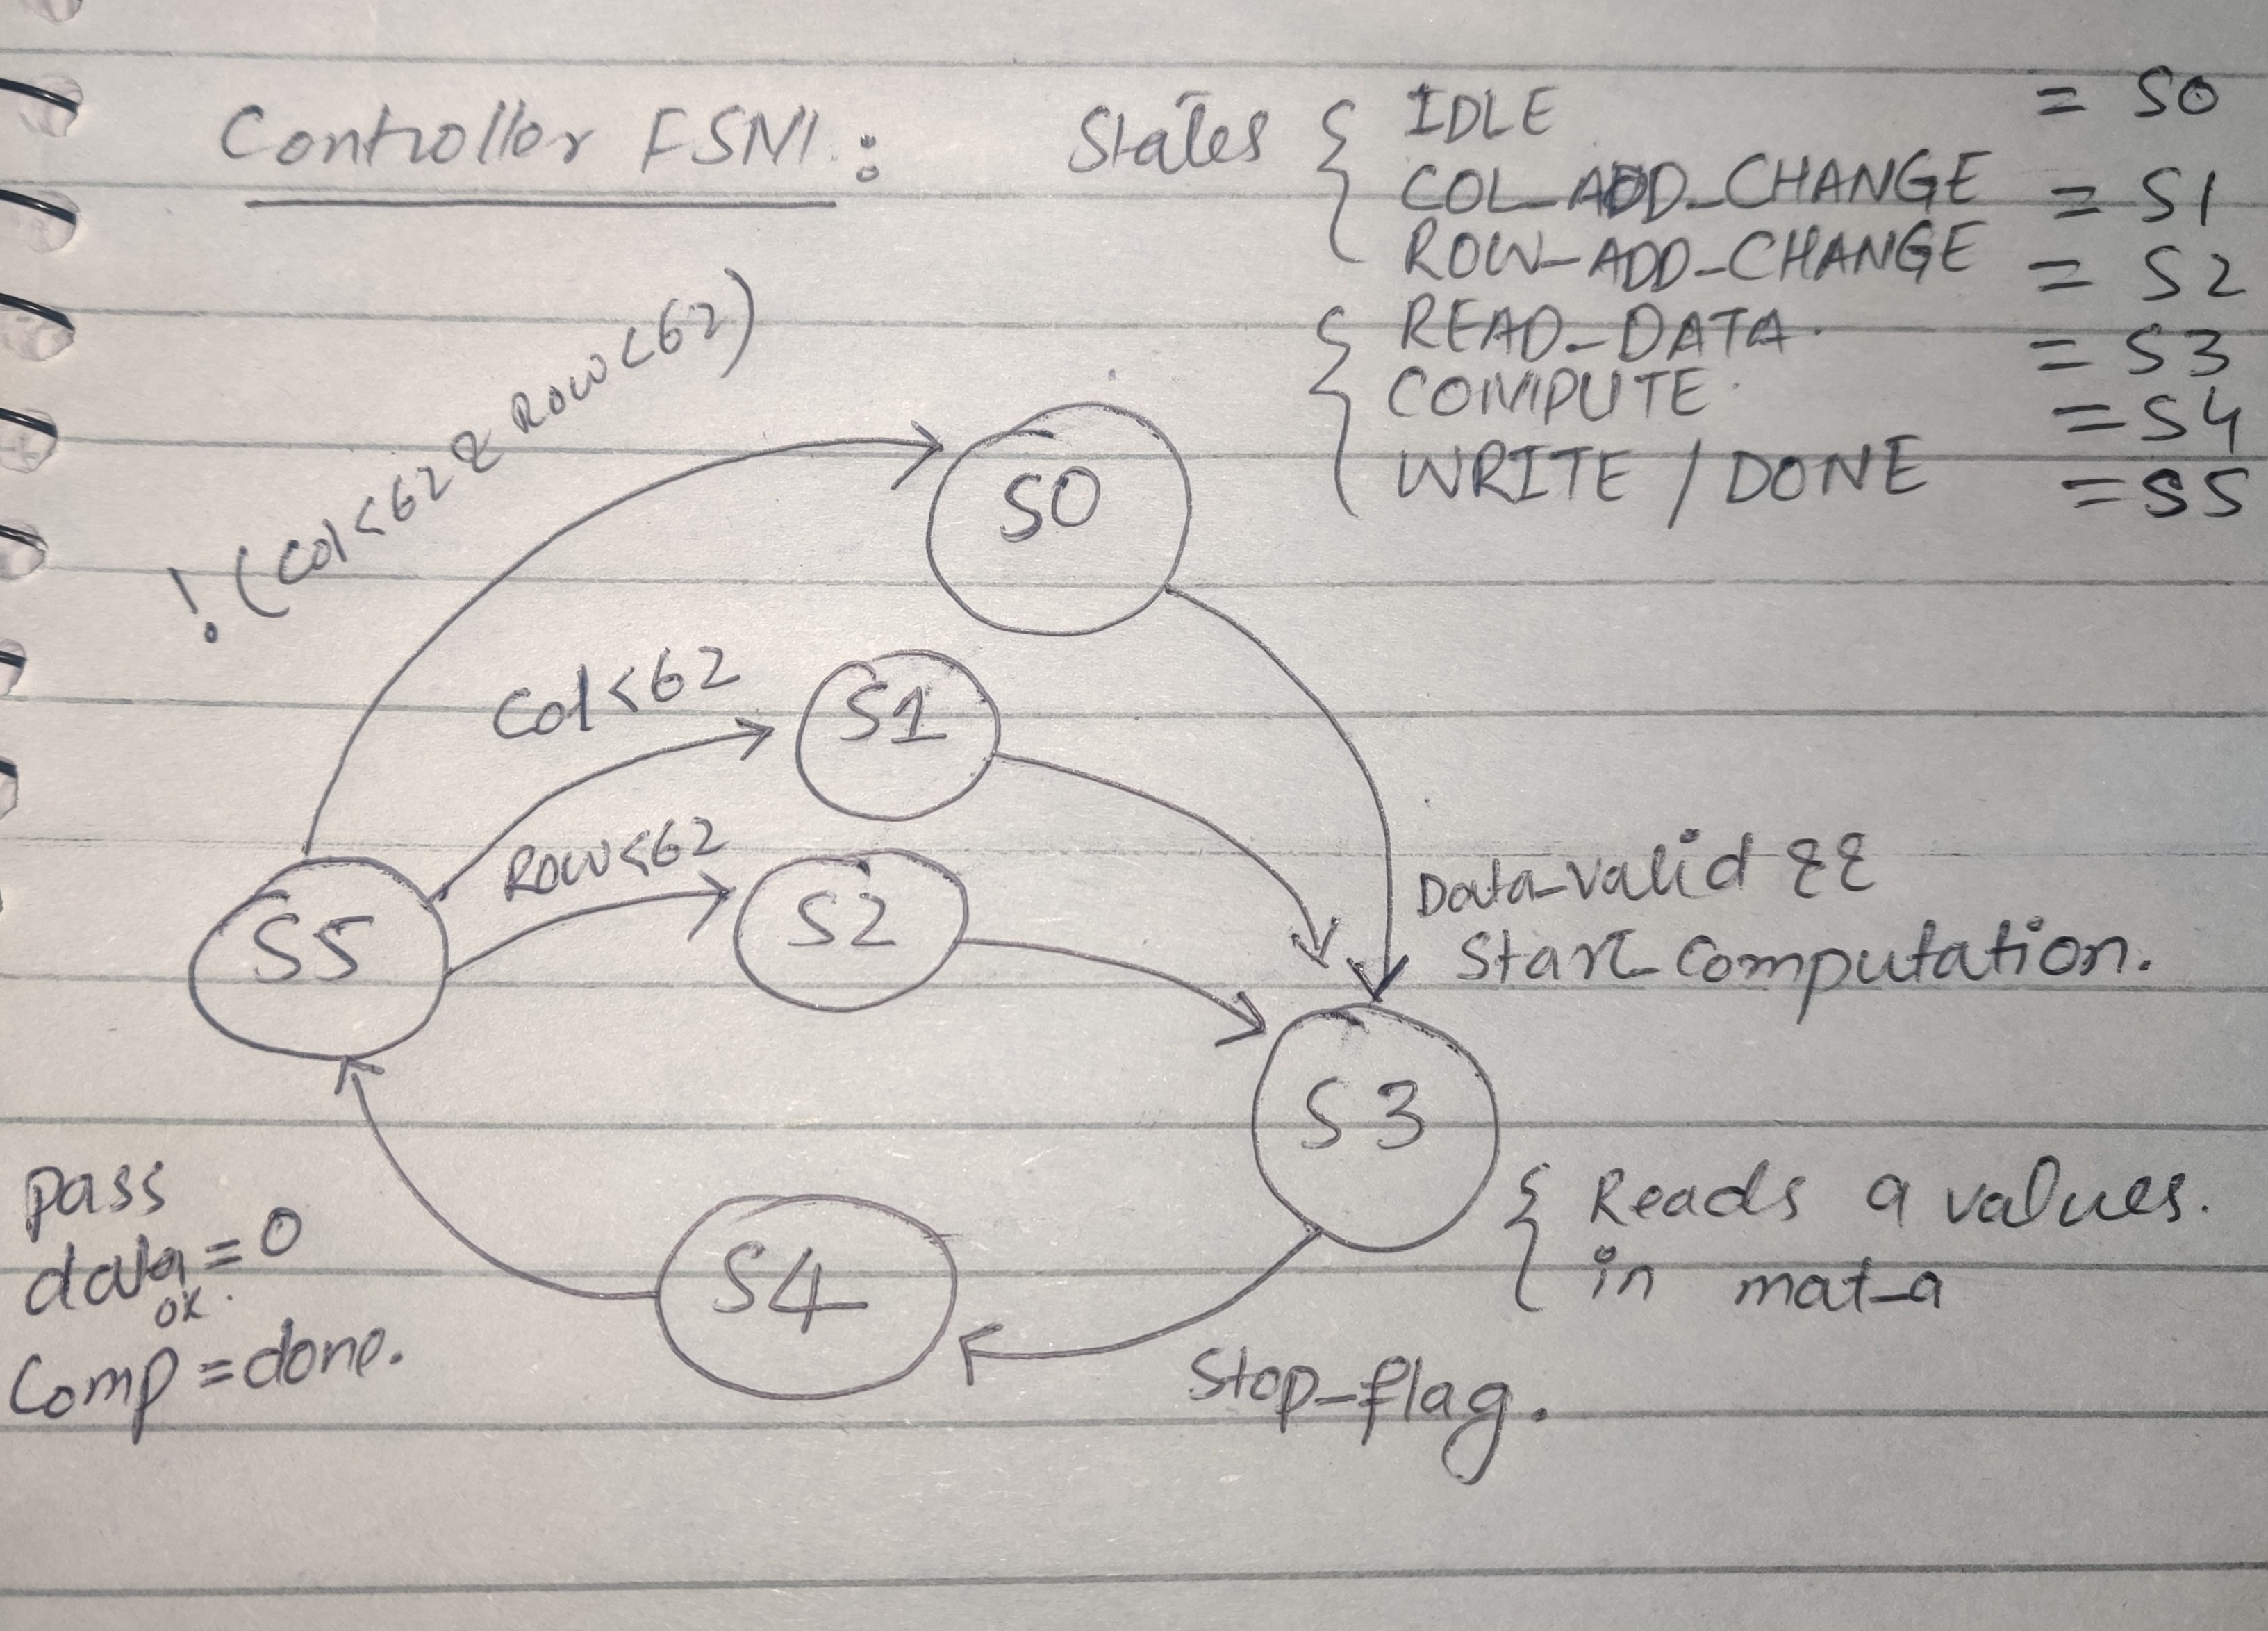 Controller FSM :
States { IDLE = S0
COL_ADD_CHANGE = S1
ROW_ADD_CHANGE = S2
{ READ_DATA. = S3
COMPUTE. = S4
WRITE / DONE = S5
! (Col<62 & Row<62)
S0
Col<62
S1
Row<62
S2
S5
Data_valid &&
Start_Computation.
S3
{ Reads 9 values.
in mat_a
Stop_flag.
S4
pass
data = 0
ok.
Comp = done.